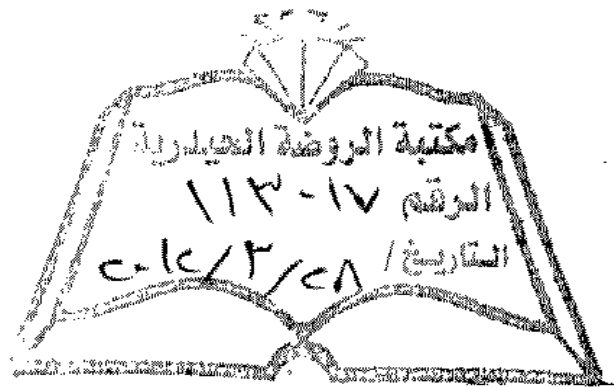 مكتبة الروضة الحيدرية
الرقم ١١٣٠١٧
التاريخ / ٢٠١٢/٣/٢٨